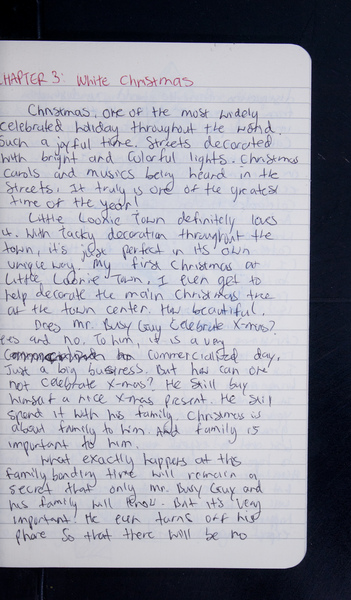 CHAPTER 3: White Christmas
Christmas. One of the most widely
celebrated holiday throughout the world.
Such a joyful time. Streets decorated
with bright and colorful lights. Christmas
carols and musics being heard in the
streets. It truly is one of the greatest
time of the year!
Little Loonie Town definitely loves
it. With tacky decoration throughout the
town, it's just perfect in its own
unique way. My first Christmas at
Little Loonie Town, I even get to
help decorate the main Christmas tree
at the town center. How beautiful.
Does Mr. Busy Guy Celebrate X-mas?
Yes and no. To him, it is a very
Commercialised day.
Just a big business. But how can one
not celebrate X-mas? He still buy
himself a nice X-mas present. He still
spend it with his family. Christmas is
about family to him. And family is
important to him.
What exactly happens at this
family bonding time will remain a
secret that only Mr. Busy Guy and
his family will know. But it's very
important. He even turns off his
phone so that there will be no